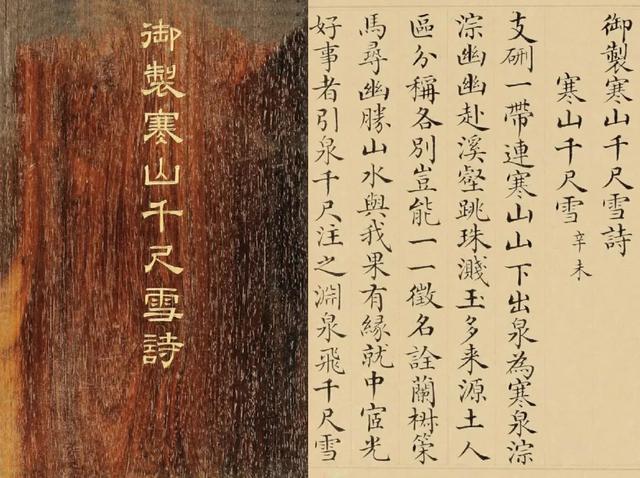 御製寒山千尺雪詩
御製寒山千尺雪詩
寒山千尺雪 辛未
支硎一帶連寒山山下出泉為寒泉淙
淙幽幽赴溪壑跳珠濺玉多来源土人
區分稱各別豈能一一徵名詮蘭椒策
馬尋幽勝山水與我果有緣就中宧光
好事者引泉千尺注之淵泉飛千尺雪